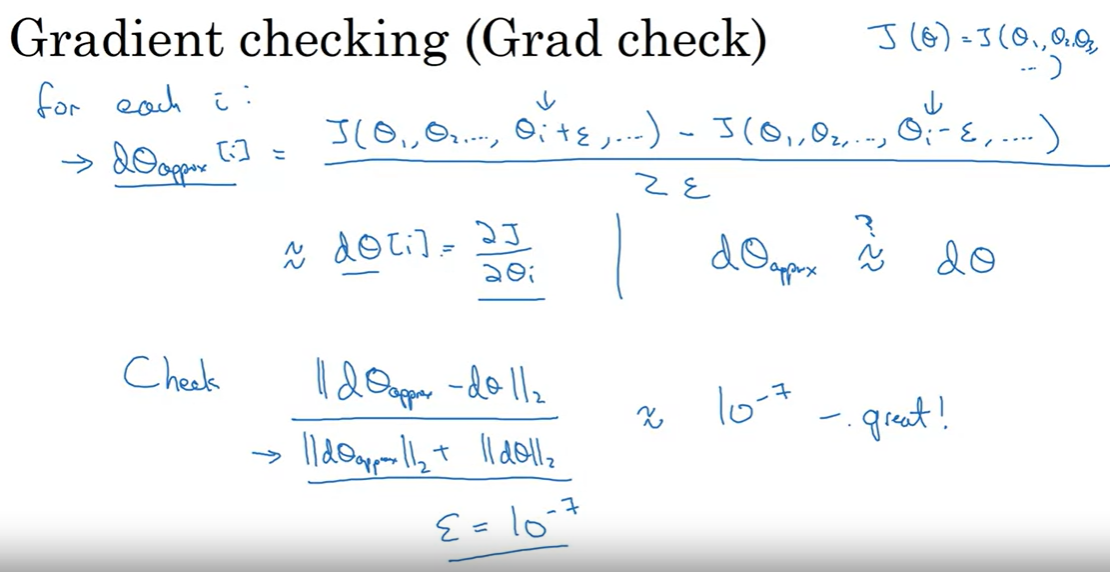 Gradient checking (Grad check)
J(θ) = J(θ₁, θ₂, θ₃, ...)
for each i:
→ dθapprox[i] = J(θ₁, θ₂, ..., θᵢ+ε, ...) - J(θ₁, θ₂, ..., θᵢ-ε, ....) / 2ε
≈ dθ[i] = ∂J/∂θᵢ | dθapprox ≈? dθ
Check ||dθapprox - dθ||₂ / ||dθapprox||₂ + ||dθ||₂ ≈ 10⁻⁷ - great!
→
ε = 10⁻⁷